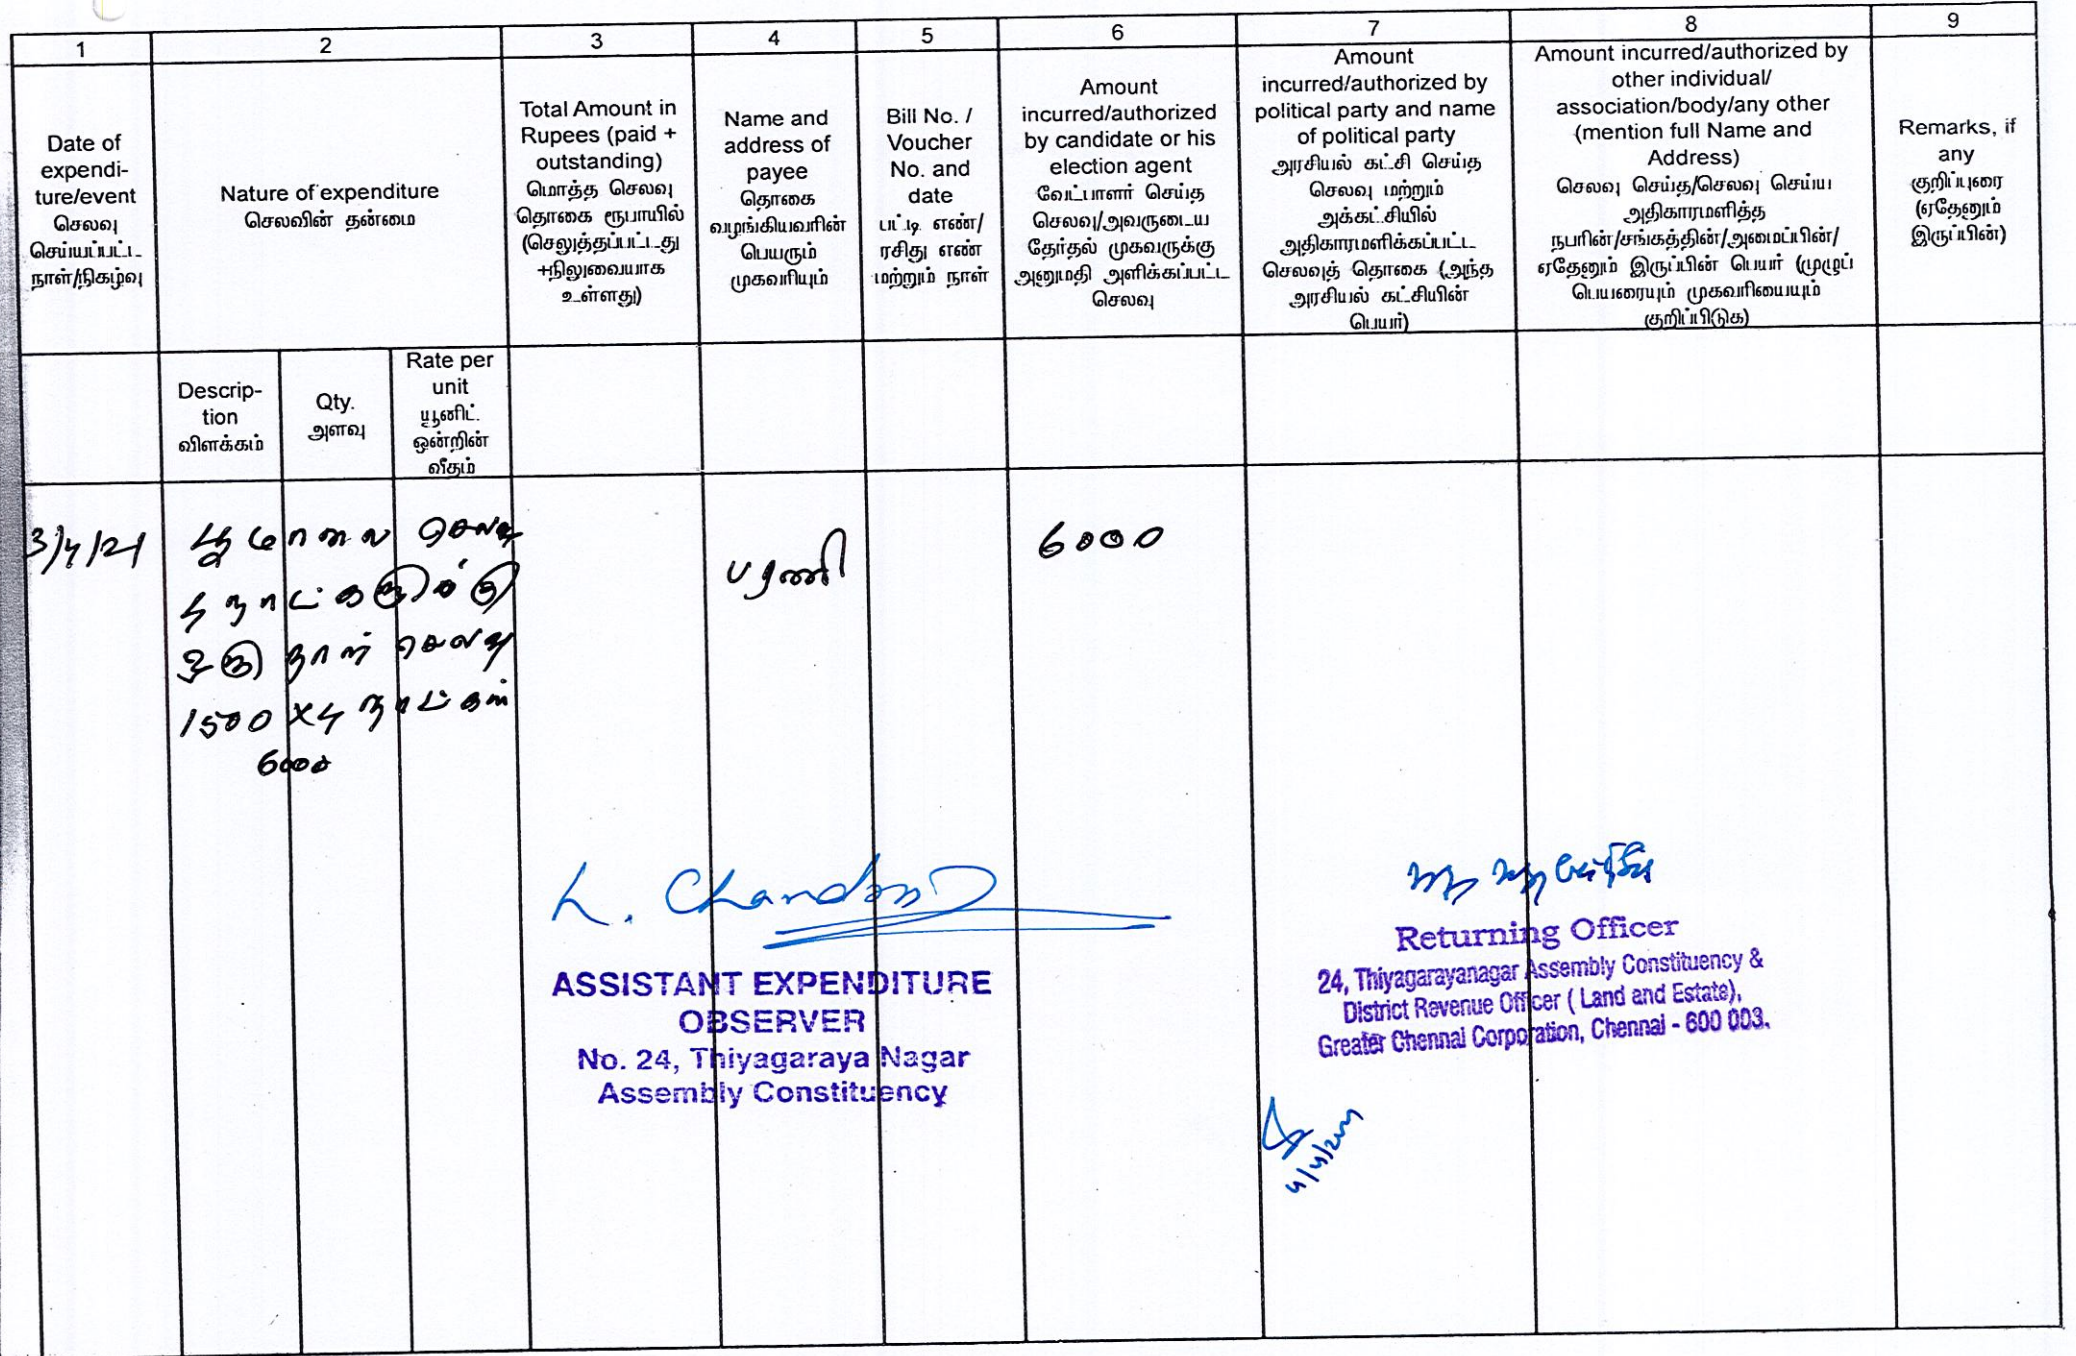 1 2 3 4 5 6 7 8 9
Date of
expendi-
ture/event
செலவு
செய்யப்பட்ட
நாள்/நிகழ்வு
Nature of expenditure
செலவின் தன்மை
Total Amount in
Rupees (paid +
outstanding)
மொத்த செலவு
தொகை ரூபாயில்
(செலுத்தப்பட்டது
+நிலுவையாக
உள்ளது)
Name and
address of
payee
தொகை
வழங்கியவரின்
பெயரும்
முகவரியும்
Bill No. /
Voucher
No. and
date
பட்டி எண்/
ரசிது எண்
மற்றும் நாள்
Amount
incurred/authorized
by candidate or his
election agent
வேட்பாளர் செய்த
செலவு/அவருடைய
தேர்தல் முகவருக்கு
அனுமதி அளிக்கப்பட்ட
செலவு
Amount
incurred/authorized by
political party and name
of political party
அரசியல் கட்சி செய்த
செலவு மற்றும்
அக்கட்சியில்
அதிகாரமளிக்கப்பட்ட
செலவுத் தொகை (அந்த
அரசியல் கட்சியின்
பெயர்)
Amount incurred/authorized by
other individual/
association/body/any other
(mention full Name and
Address)
செலவு செய்த/செலவு செய்ய
அதிகாரமளித்த
நபரின்/சங்கத்தின்/அமைப்பின்/
ஏதேனும் இருப்பின் பெயர் (முழுப்
பெயரையும் முகவரியையும்
குறிப்பிடுக)
Remarks, if
any
குறிப்புரை
(ஏதேனும்
இருப்பின்)
Descrip-
tion
விளக்கம்
Qty.
அளவு
Rate per
unit
யூனிட்
ஒன்றின்
வீதம்
3/4/21 பூமாலை செலவு பரணி 6000
4 நாட்களுக்கு
ஒரு நாள் செலவு
1500 x 4 நாட்கள்
6000
L. Chandra
ASSISTANT EXPENDITURE
OBSERVER
No. 24, Thiyagaraya Nagar
Assembly Constituency
Returning Officer
24, Thiyagarayanagar Assembly Constituency &
District Revenue Officer ( Land and Estate),
Greater Chennai Corporation, Chennai - 600 003.